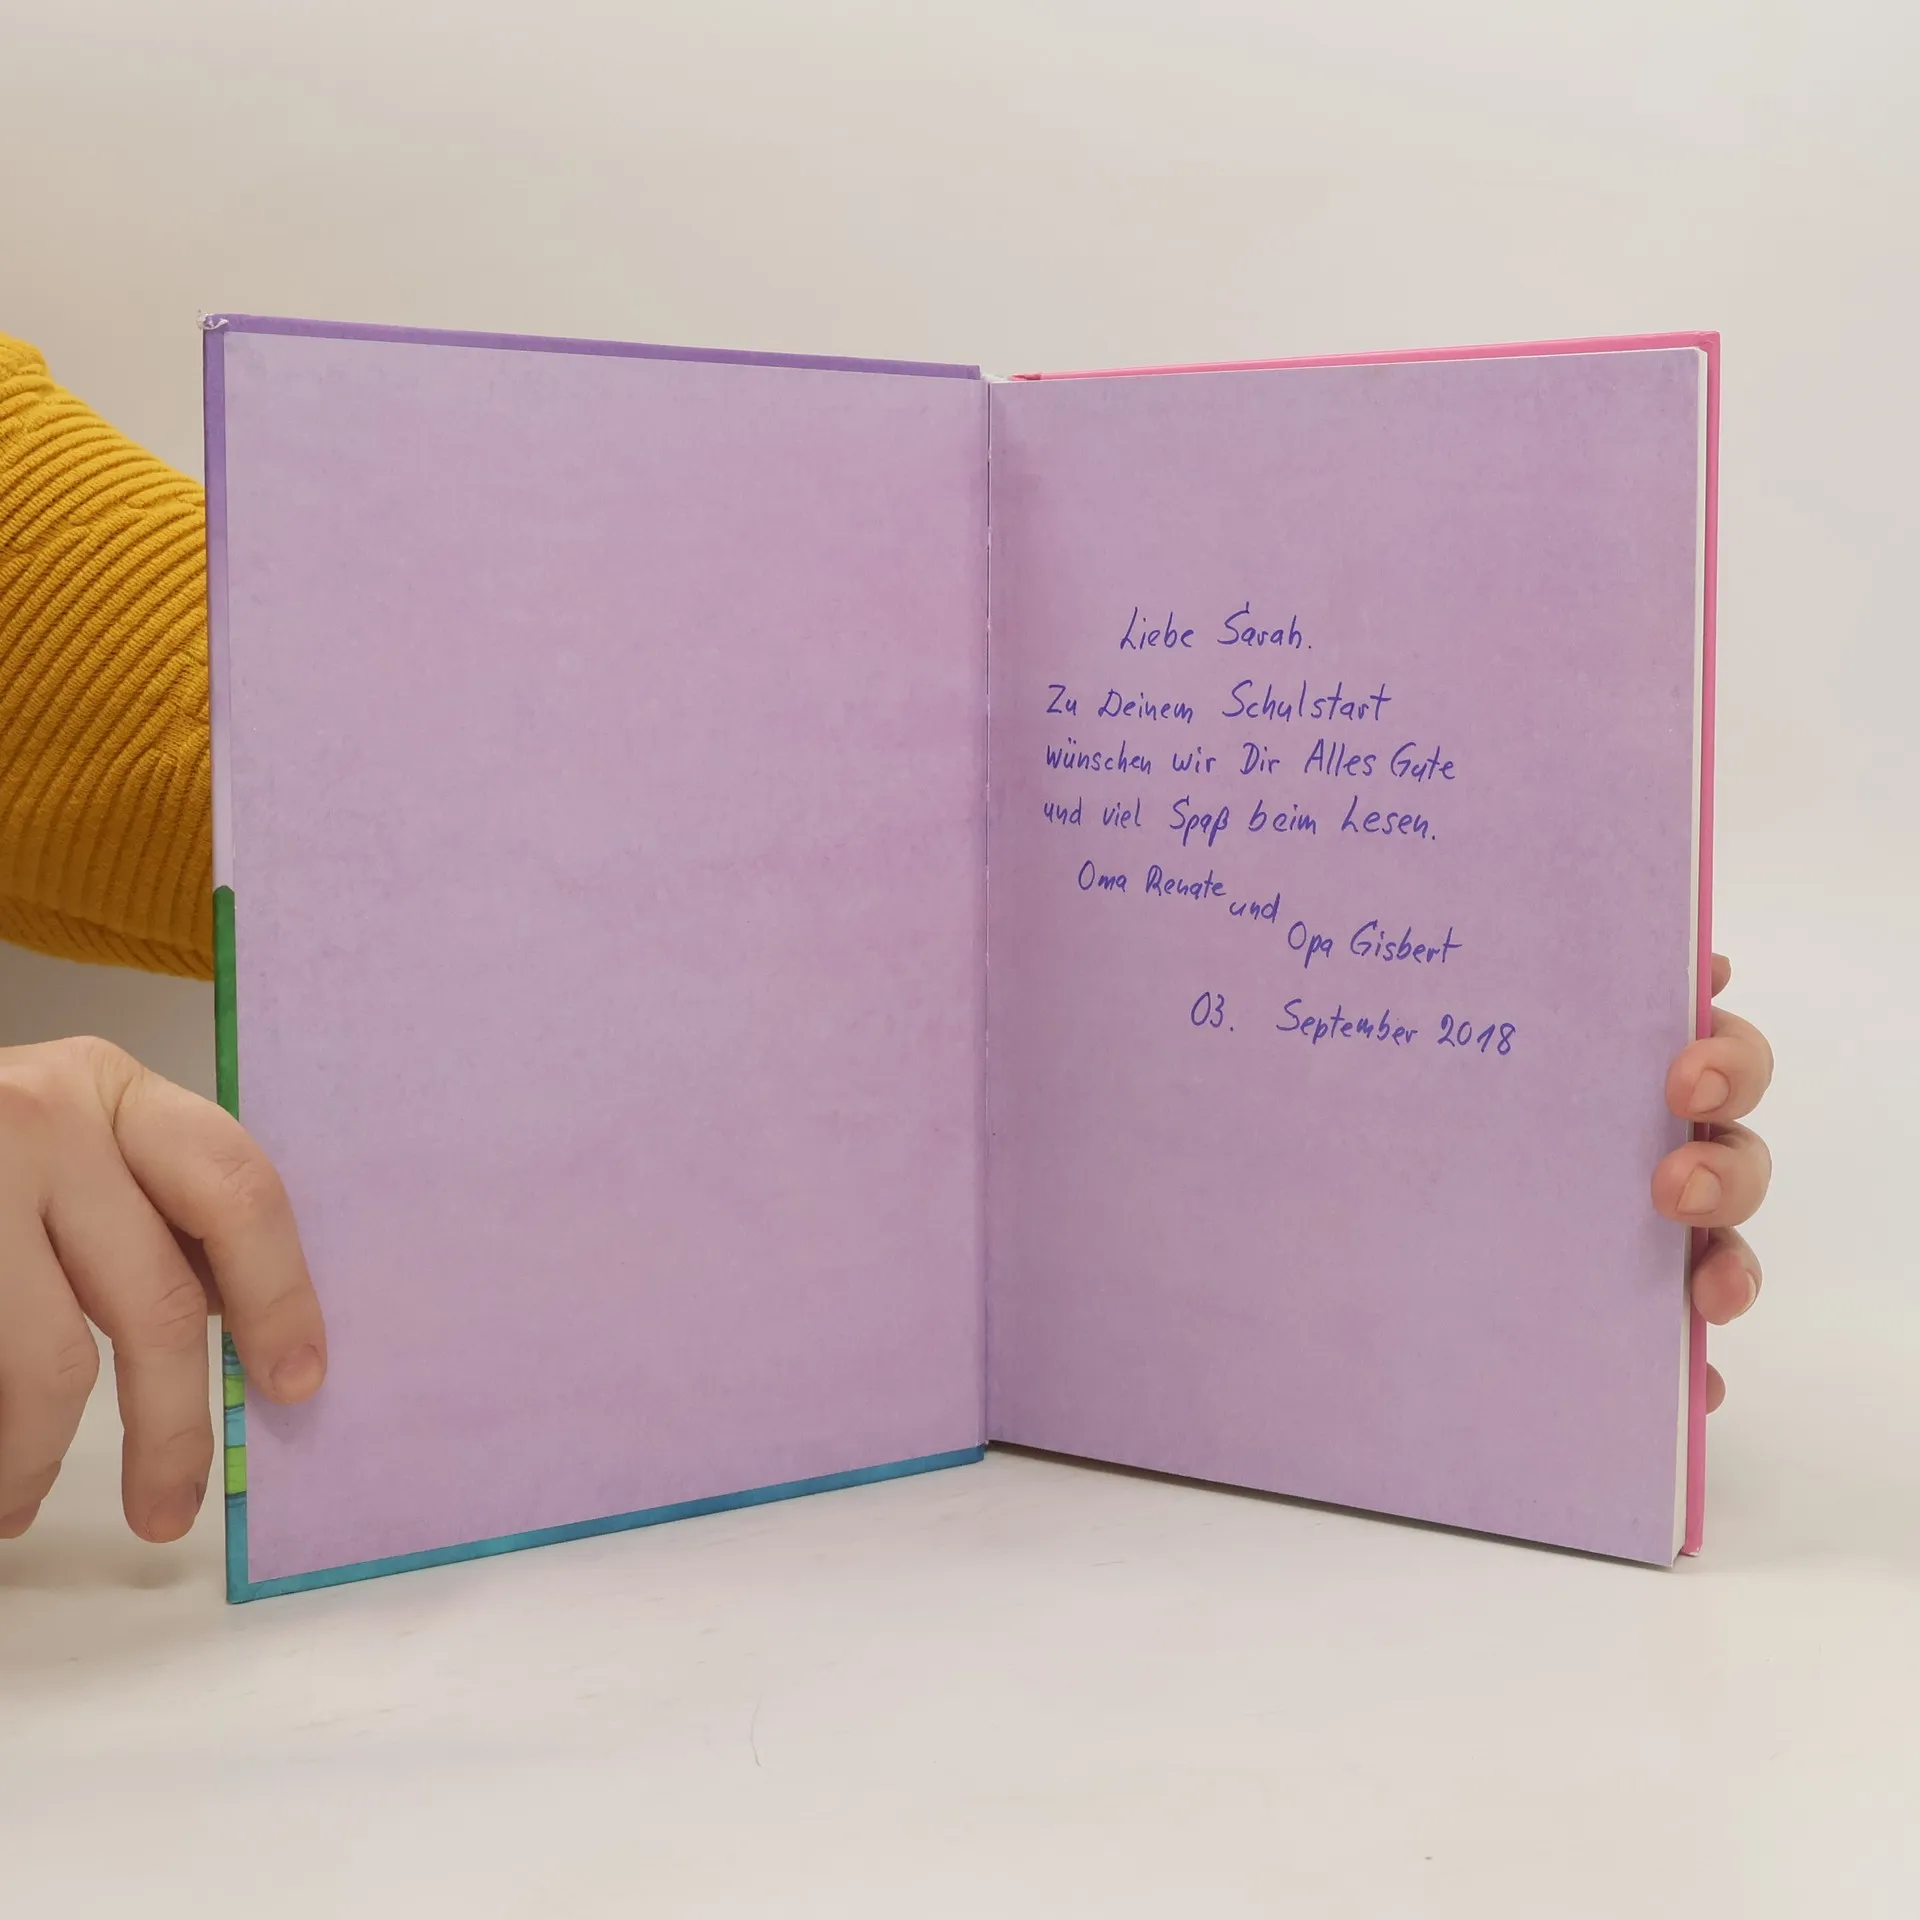 Liebe Sarah.
Zu Deinem Schulstart
wünschen wir Dir Alles Gute
und viel Spaß beim Lesen.
Oma Renate und
Opa Gisbert
03. September 2018